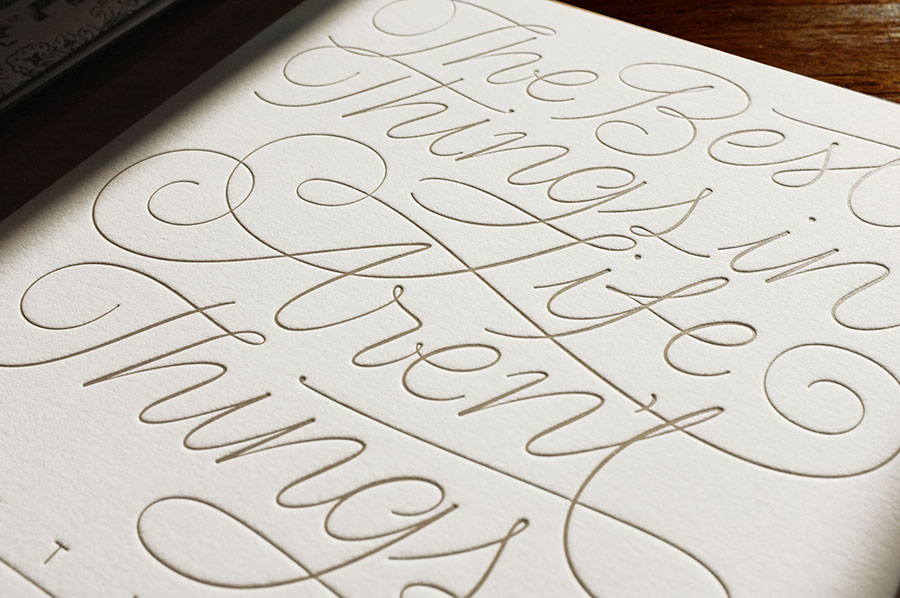 The Best
Things in
Life
Aren't
Things
T